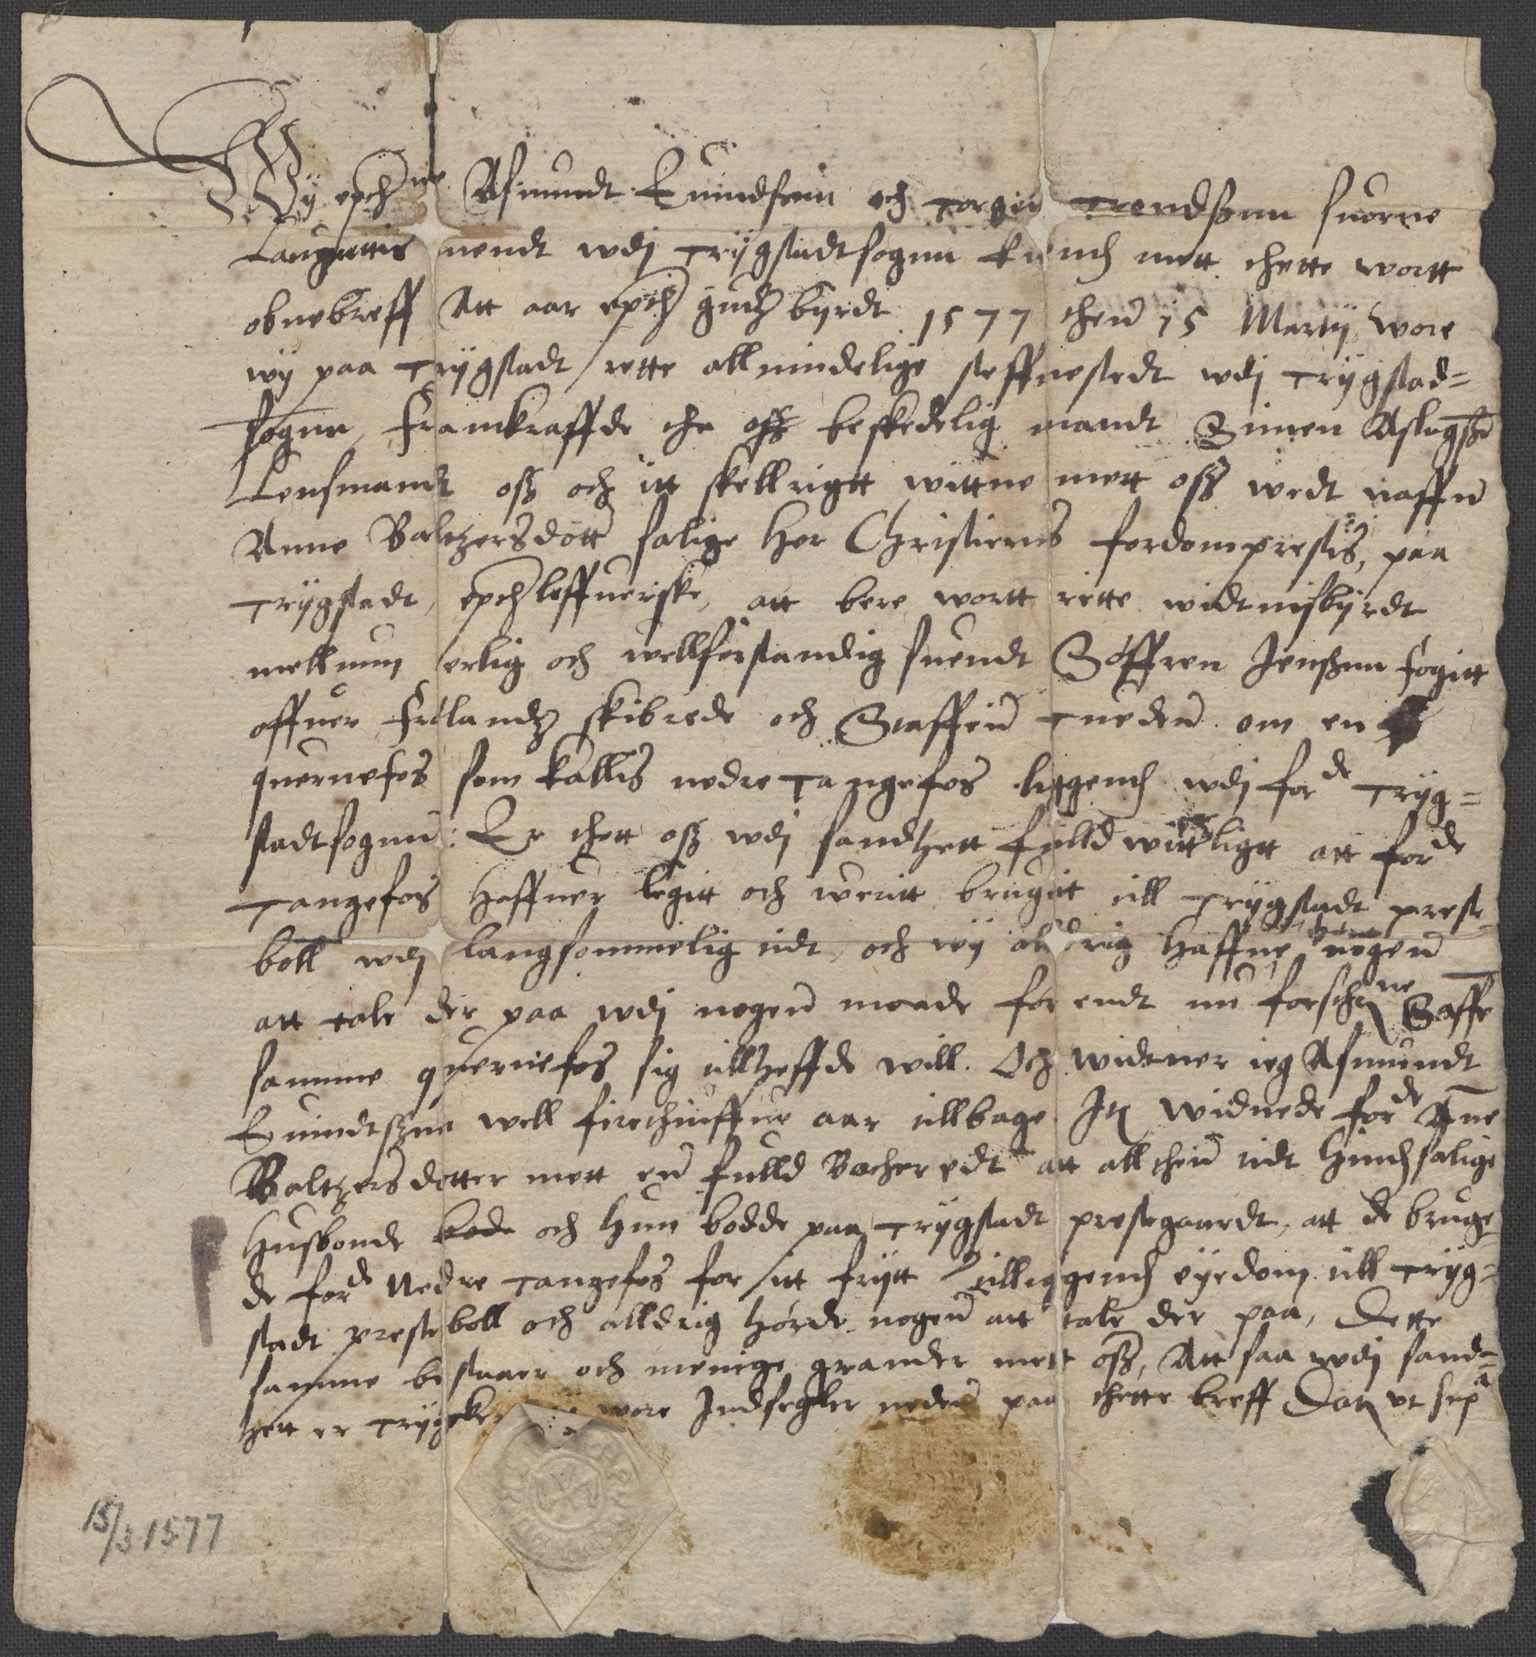 Wij epthne Asmundt Euindsenn och Torger Trondsønn suorne
Laugrettis mendt wdj Trygstadt sogun kiendis mett thette wortt
obnebreff Att aar epther gudz byrdt 1577 thend 15 Martij wore
wij paa Trygstadt rette allmindelige steffnestedt wdj Trygstad=
sognn, Framkraffde tha oss beskedelig mandt Simen Aslagsøn
Lensmandt oss och itt skellrigtt wittne mett oss wedt naffn
Anne Baltzersdotter salige Her Christierns fordomprestis, paa
Trygstadt, epthleffuerske, att bere wortt rette widtnisbyrdt
mellnum erlig och wellforstandig suendt Søffren Jenssnn fogitt
offuer Frølandz skibrede och Staffen Tueden om en
quernefos som kallis nedre Tangefos liggendis wdj forde Tryg=
stadtsogun: Er thett oss wdj sandhett fulld witterligtt att forde
Tangefos haffuer legitt och weritt brugitt till Trygstadt preste
boll wdj langsommelig tidt, och wij alldrig haffue hørtt nogen
att tale der paa wdj nogen maade for endt nu forschne Staffen
samme quernefos sig tillheffde will. Och widtner ieg Asmundt
Euindtssnn well firethiuffue aar tillbage. Itm widnede forde Anne
Baltzersdotter mett en fulld Boger edt att all then tidt hindis salige
Husbonde bode och hun bodde paa Trygstadt prestegaardt, att de bruge
de forde Nedre Tangefos for itt frytt tilliggendis eyedom till Tryg=
stadt presteboll och alldrig hørde nogen att tale der paa, Dette
samme bestaaer och menige grander mett oss, Att saa wdj sand=
hett er trycker wij wore Indsegler neden paa thette breff Datum vt supra
15/3 1577